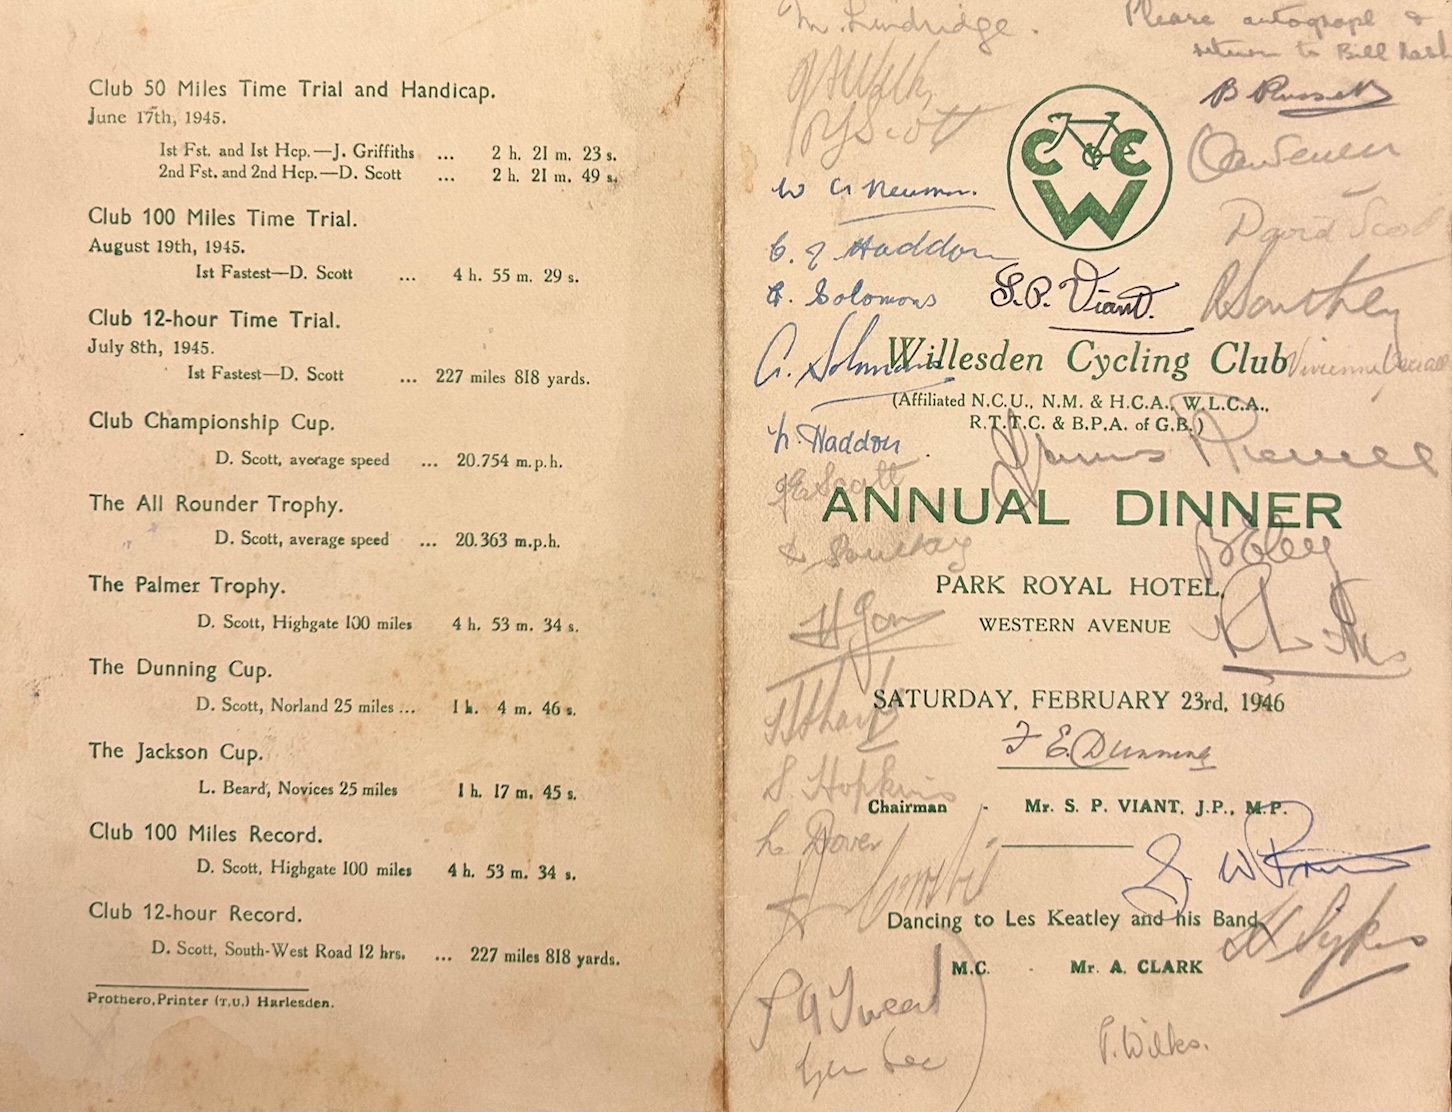 Club 50 Miles Time Trial and Handicap.
June 17th, 1945.
1st Fst. and 1st Hcp.—J. Griffiths ... 2 h. 21 m. 23 s.
2nd Fst. and 2nd Hcp.—D. Scott ... 2 h. 21 m. 49 s.
Club 100 Miles Time Trial.
August 19th, 1945.
1st Fastest—D. Scott ... 4 h. 55 m. 29 s.
Club 12-hour Time Trial.
July 8th, 1945.
1st Fastest—D. Scott ... 227 miles 818 yards.
Club Championship Cup.
D. Scott, average speed ... 20.754 m.p.h.
The All Rounder Trophy.
D. Scott, average speed ... 20.363 m.p.h.
The Palmer Trophy.
D. Scott, Highgate 100 miles 4 h. 53 m. 34 s.
The Dunning Cup.
D. Scott, Norland 25 miles ... 1 h. 4 m. 46 s.
The Jackson Cup.
L. Beard, Novices 25 miles 1 h. 17 m. 45 s.
Club 100 Miles Record.
D. Scott, Highgate 100 miles 4 h. 53 m. 34 s.
Club 12-hour Record.
D. Scott, South-West Road 12 hrs. ... 227 miles 818 yards.
Prothero, Printer (T.U.) Harlesden.
Please autograph &
return to Bill
M. Lindridge.
B Russell
Scott
W G Newman.
C. J Haddon
David Scott
G. Solomons
S. P. Viant.
R Southey
G. Solomons
CCW
Willesden Cycling Club
Vivienne
(Affiliated N.C.U., N.M. & H.C.A., W.L.C.A.,
R.T.T.C. & B.P.A. of G.B.)
h. Haddon.
Scott
ANNUAL DINNER
PARK ROYAL HOTEL,
WESTERN AVENUE
SATURDAY, FEBRUARY 23rd, 1946
F E. Dunning
S. Hopkins
Chairman - Mr. S. P. VIANT, J.P., M.P.
L. Dover
Dancing to Les Keatley and his Band
H Sykes
M.C. - Mr. A. CLARK
F A Tweed
Gen Sec
P. Wilks.